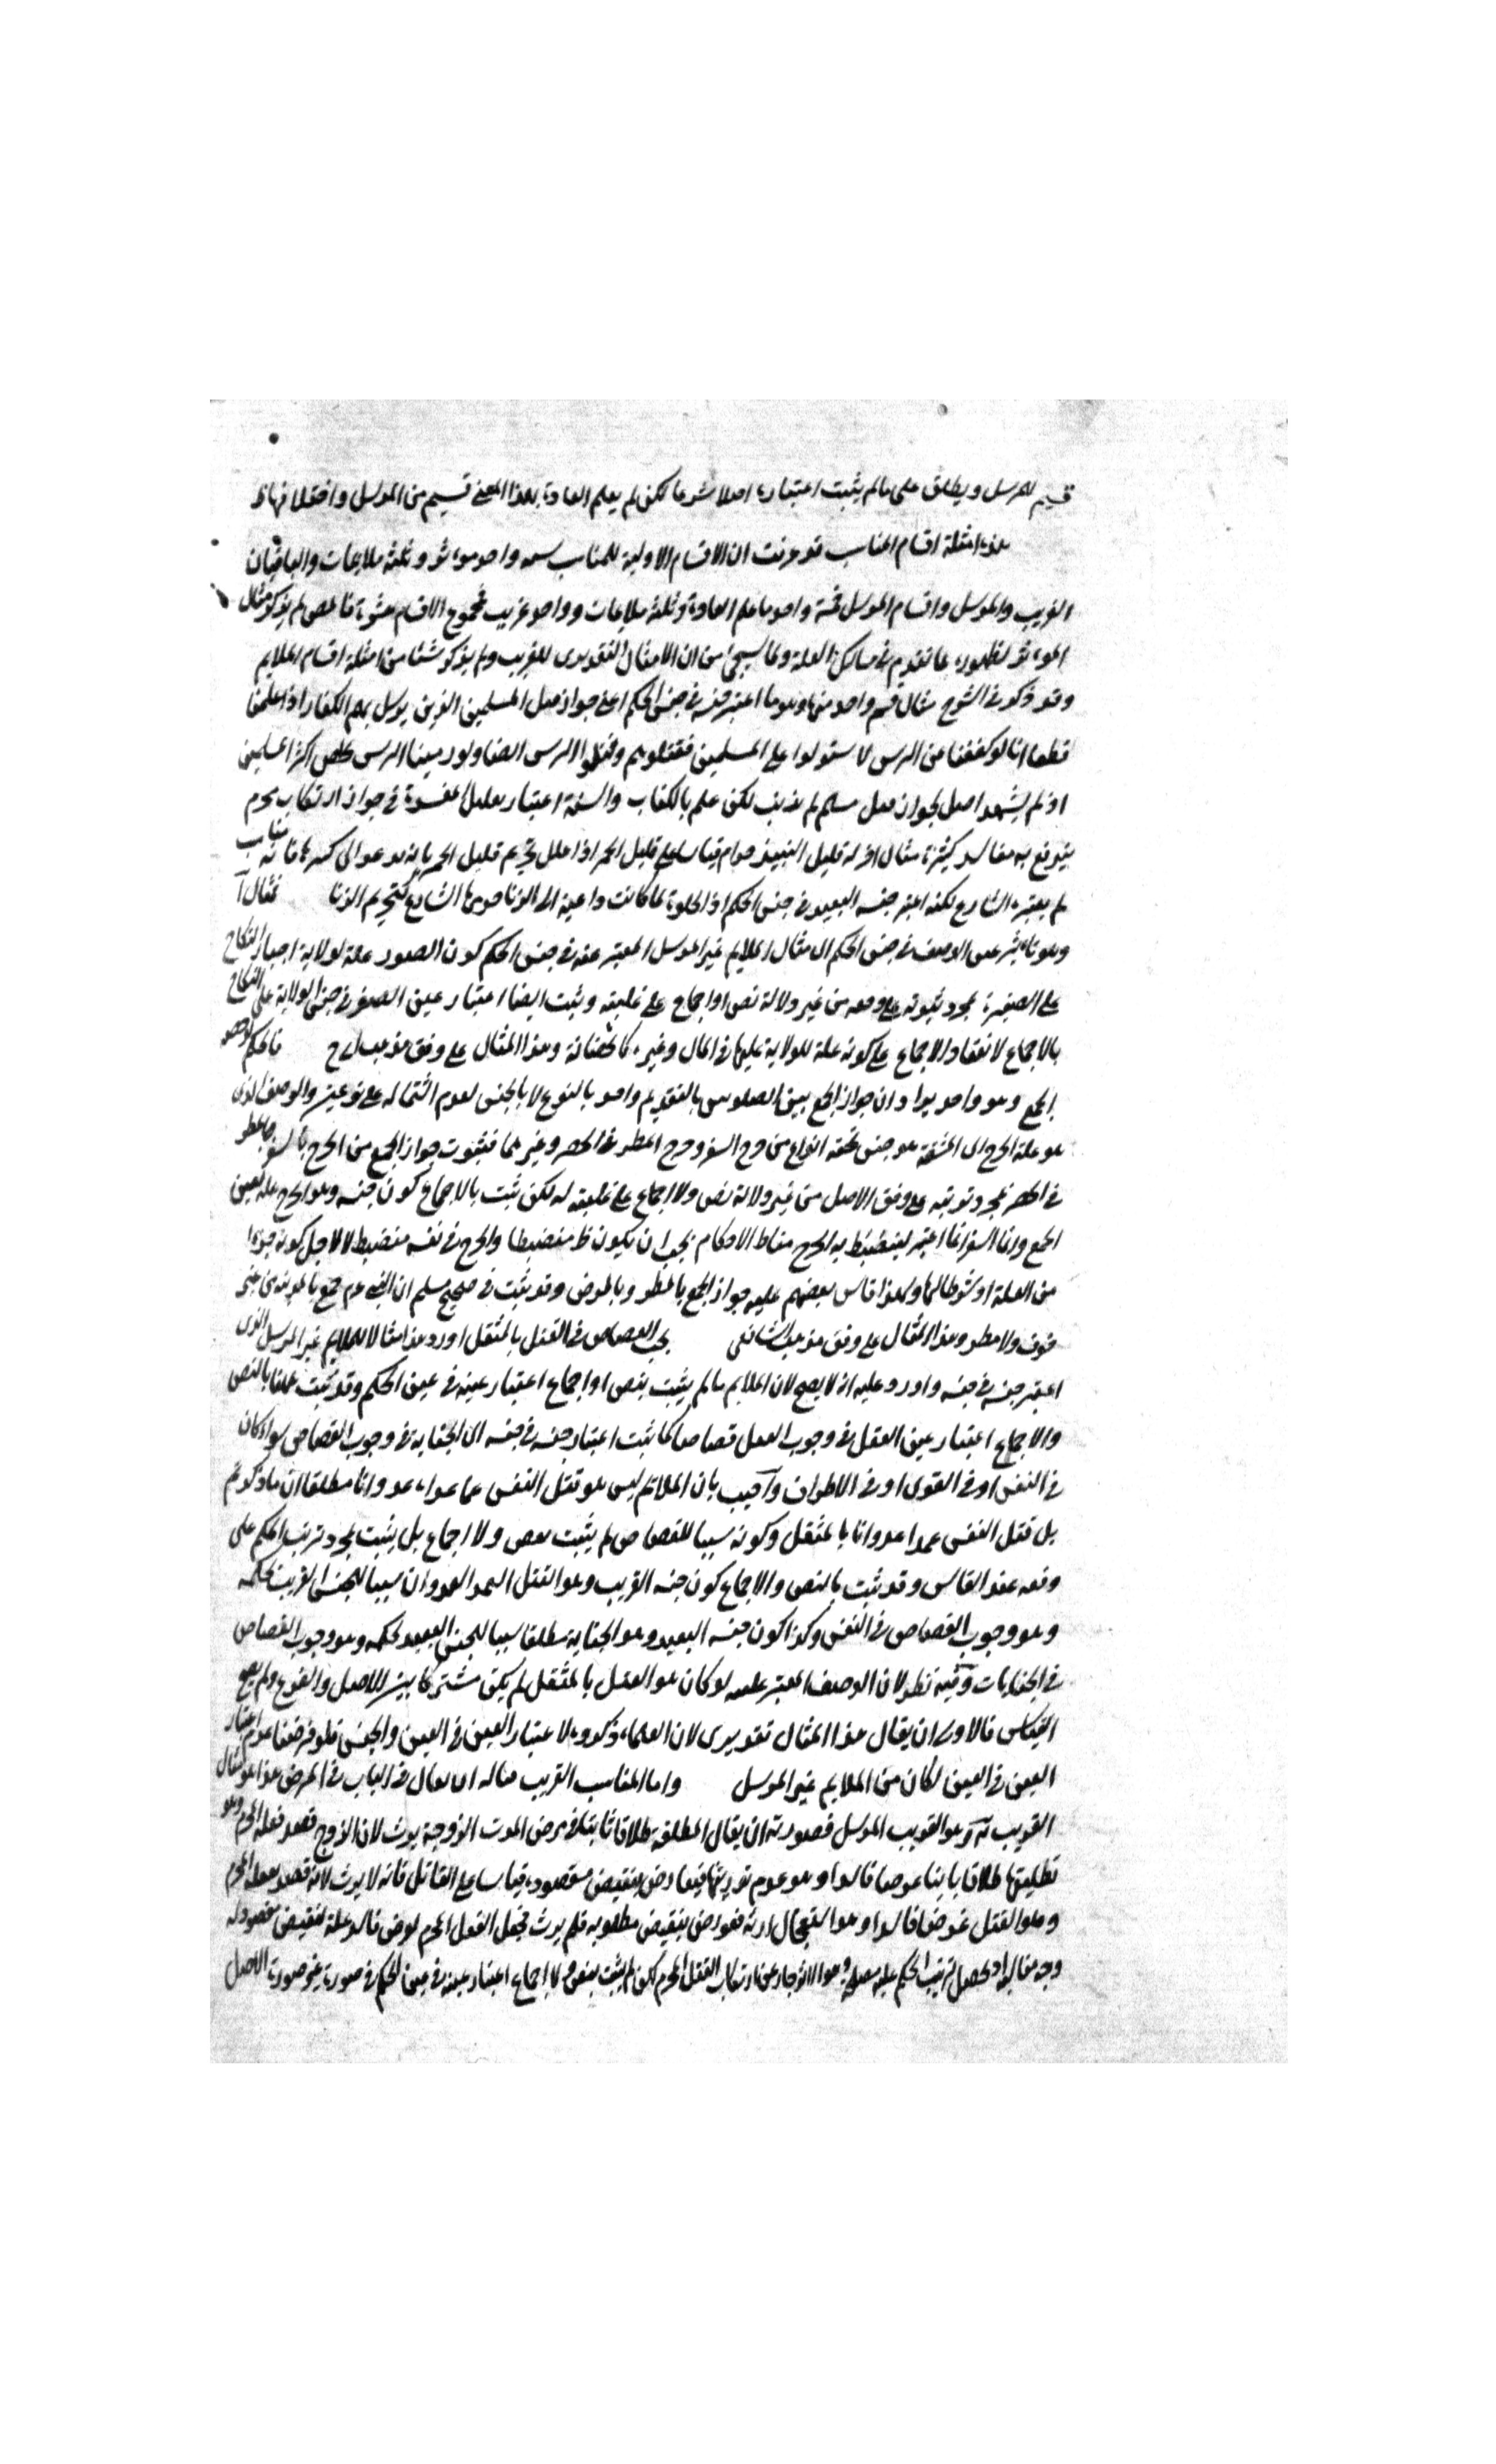 قسيم للمرسل ويطلق على مالم يثبت اعتباره اصلا شرعا لكن لم يعلم الغاؤه بهذا المعنى قسيم من المرسل واختلافهما ظ
هذه امثلة اقسام المناسب قد عرفت ان الاقسام الاولية للمناسب ستة واحد مؤثر وثلثة ملايمات والباقيان
الغريب والمرسل واقسام المرسل خمسة واحد ما علم الغاؤه وثلثة ملايمات وواحد غريب فمجموع الاقسام عشرة فالمص لم يذكر مثال
المؤثر لظهوره بما تقدم في مسالك العلة ولما سيجئ من ان الامثال التقديرى للغريب ولم يذكر شئا من امثلة اقسام الملايم
وقد ذكر في الشرح مثال قسم واحد منها وهو ما اعتبر جنسه في جنس الحكم اعنى جواز قتل المسلمين الذين يرسل بهم الكفار اذا علمنا
قطعا انا لو كففنا عن الترس لاستولوا على المسلمين فقتلوهم وقتلوا الترس ايضا ولو رمينا الترس يخلص اكثر المسلمين
اذ لم يشهد اصل بجواز قتل مسلم لم يذنب لكن علم بالكتاب والسنة اعتبار تقليل المفسدة في جواز ارتكاب محرم
يندفع به مفاسد كثيرة مثال اخر له قليل النبيذ حرام قياسا على قليل الخمر اذا علل تحريم قليل الخمر بانه يدعو الى كثيرها فانه مناسب
لم يعتبره الشارع لكنه اعتبر جنسه البعيد في جنس الحكم اذ الخلوة لما كانت داعية الى الزنا حرمها الشارع كتحريم الزنا فمثال آ
وهو تاثير عين الوصف في جنس الحكم اى مثال الملايم غير المرسل المعتبر عينه في جنس الحكم كون الصغر علة لولاية اجبار النكاح
على الصغيرة بمجرد ثبوته على وفقه من غير دلالة نص او اجماع على عليته وثبت ايضا اعتبار عين الصغر في جنس الولاية على النكاح
بالاجماع لانعقاد الاجماع على كونه علة للولاية عليها في المال وغيره كالحضانة وهذا المثال على وفق مذهب ح فالحكم رخصة
الجمع وهو واحد يراد ان جواز الجمع بين الصلوتين بالتقديم واحد بالنوع لا بالجنس لعدم اشتماله على نوعين والوصف الذى
هو علة الحرج اى المشقة هو جنس تحته انواع من حرج السفر وحرج المطر في الحضر وغيرهما فثبوت جواز الجمع من الحرج بالسفر والمطر
في الحضر بمجرد ترتبه على وفق الاصل من غير دلالة نص ولا اجماع على عليته له لكن ثبت بالاجماع كون جنسه وهو الحرج علة لعين
الجمع وانما السفر انما اعتبر لينضبط به الحرج مناط الاحكام يجب ان يكون ظ منضبطا والحرج في نفسه منضبط لا لاجل كونه جزءا
من العلة او شرطا لها ولهذا قاس بعضهم عليه جواز الجمع بالمطر وبالمرض وقد ثبت في صحيح مسلم ان النبى عم جمع بالمدينة من غير
خوف ولا مطر وهذا المثال على وفق مذهب الشافعى يجب القصاص في القتل بالمثقل اورد هذا مثالا للملايم غير المرسل الذى
اعتبر جنسه في جنسه واورد عليه انه لا يصح لان الملايم مالم يثبت بنص او اجماع اعتبار عينه في عين الحكم وقد ثبت ههنا بالنص
والاجماع اعتبار عين القتل في وجوب القتل قصاصا كما ثبت اعتبار جنسه في جنسه اى الجناية في وجوب القصاص سواء كان
في النفس او في القوى او في الاطراف وآجيب بان الملائم ليس هو قتل النفس عمدا عدوانا مطلقا اى ما ذكرتم
بل قتل النفس عمدا عدوانا بالمثقل وكونه سببا للقصاص لم يثبت بنص ولا اجماع بل يثبت بمجرد ترتب الحكم على
وفقه عند القائس وقد ثبت بالنص والاجماع كون جنسه القريب وهو القتل العمد العدوان سببا للجنس القريب لحكمه
وهو وجوب القصاص في النفس وكذا كون جنسه البعيد وهو الجناية مطلقا سببا للجنس البعيد لحكمه وهو وجوب القصاص
في الجنايات وفيه نظر لان الوصف المعتبر عليته لو كان هو القتل بالمثقل لم يكن مشتركا بين الاصل والفرع ولم يصح
القياس فالاولى ان يقال هذا المثال تقديرى لان العلماء ذكروه لاعتبار العين في العين والجنس فلو فرضنا عدم اعتبار
العين في العين لكان من الملايم غير المرسل واما المناسب الغريب مثاله ان يقال في البات في المرض هذا هو مثال
الغريب تـه وهو الغريب المرسل فصورته ان يقال المطلقة طلاقا ثابتا في مرض الموت الزوجة يورث لان الزوج قصد فعله المحرم وهو
تطليقها طلاقا باينا غرضا فاسدا وهو عدم توريثها فيعارض بنقيض مقصوده قياسا على القاتل فانه لا يرث لانه قصد بفعله المحرم
وهو القتل غرضا فاسدا وهو استعجال ارثه فعورض بنقيض مطلوبه فلم يرث فجعل الفعل المحرم لغرض فاسد علة لنقيض مقصوده له
وجه مناسبة اذ يحصل ترتيب الحكم عليه مصلحة وهو الانزجار عن ارتكاب القتل المحرم لكن لم يثبت بنص ولا اجماع اعتبار عينه في عين الحكم في صورة غير صورة الاصل